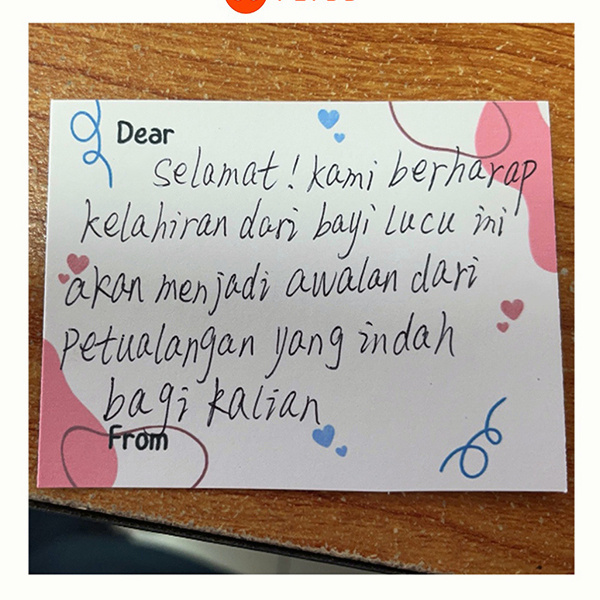 Dear
Selamat! kami berharap
kelahiran dari bayi lucu ini
akan menjadi awalan dari
Petualangan yang indah
bagi kalian
From